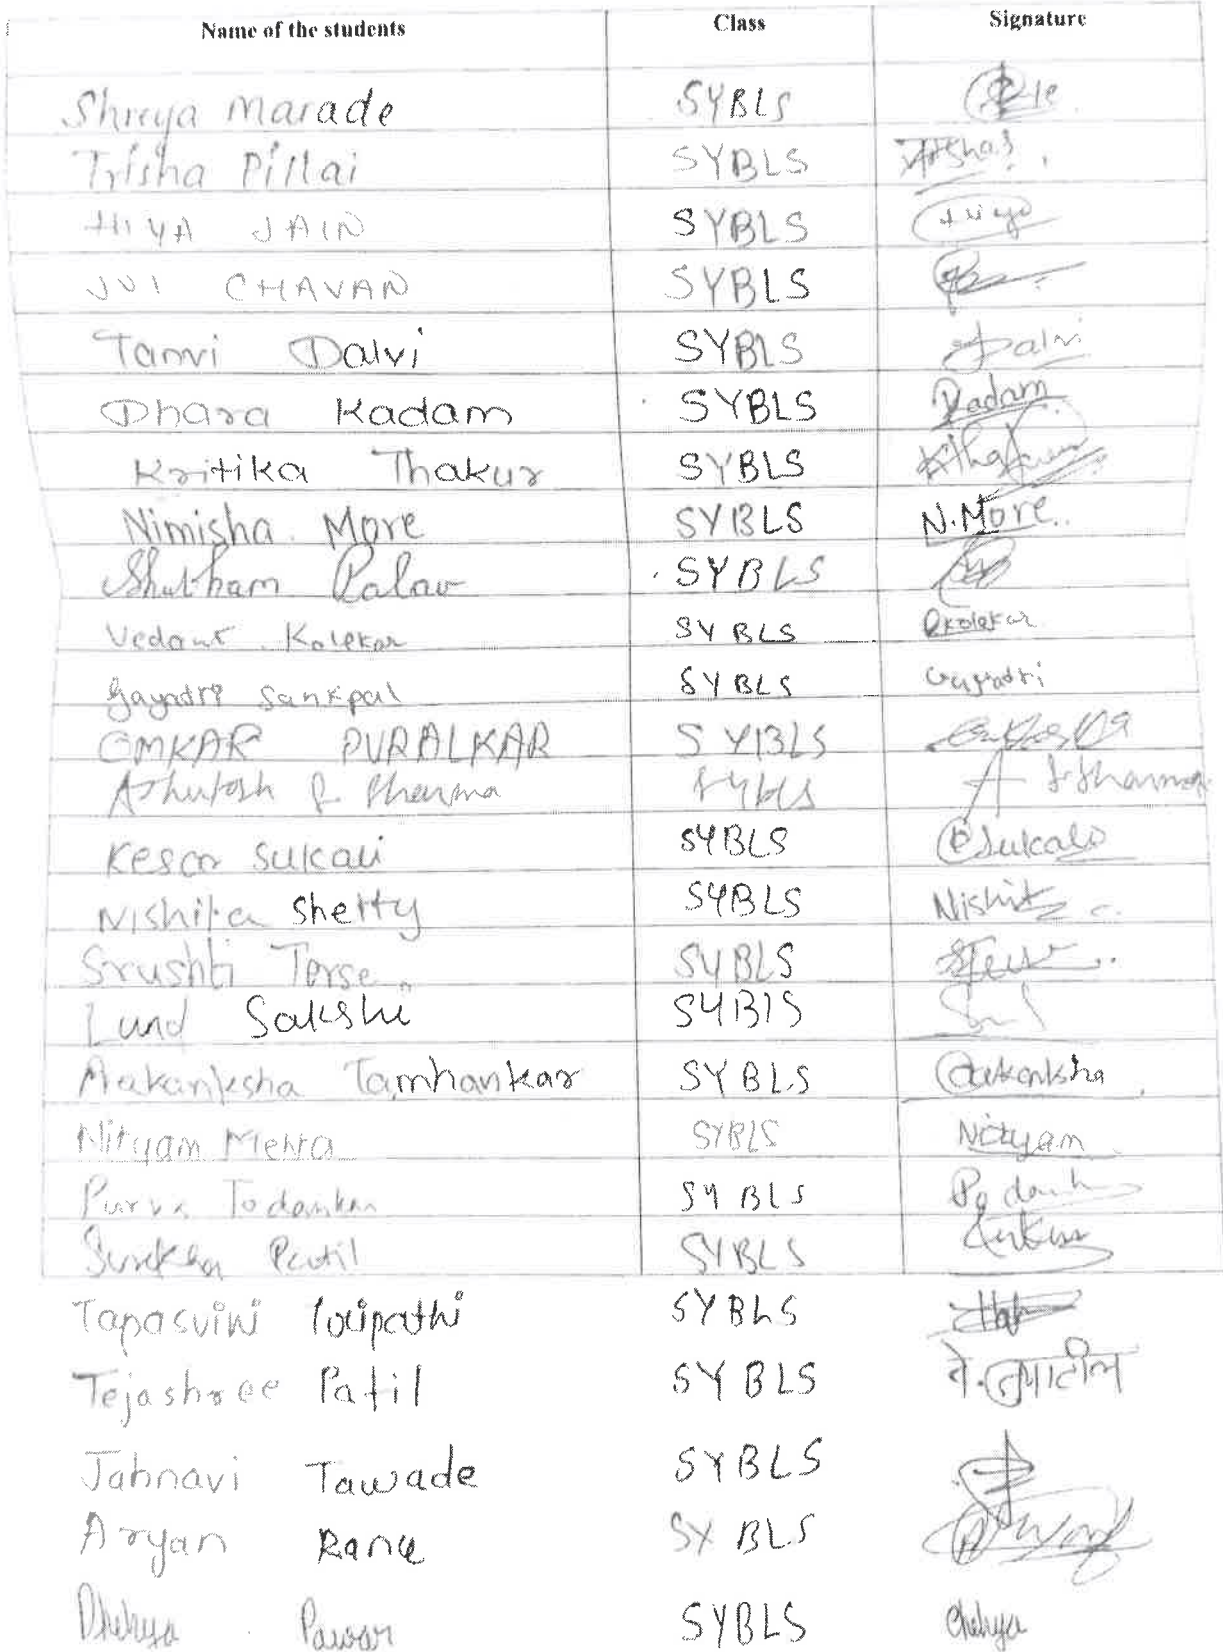 Name of the students Class Signature
Shreya Marade SYBLS
Trisha Pillai SYBLS
HIYA JAIN SYBLS Hiya
JUI CHAVAN SYBLS
Tanvi Dalvi SYBLS Dalvi
Dhara Kadam SYBLS Kadam
Kritika Thakur SYBLS KThakur
Nimisha More SYBLS N.More
Shubham Palav SYBLS
Vedant Kolekar SYBLS Kolekar
Gayatri Sankpal SYBLS Gayatri
OMKAR PURALKAR SYBLS
Ashutosh S Sharma SYBLS A S Sharma
Kesar Sukali SYBLS
Nishita Shetty SYBLS
Srushti Terse SYBLS
Lund Sakshi SYBLS
Aakanksha Tamhankar SYBLS Aakanksha
Nityam Mehta SYBLS Nityam
Purva Todankar SYBLS
Surekha Patil SYBLS
Tapasvini SYBLS
Tejashree Patil SYBLS
Jahnavi Tawade SYBLS
Aryan Rane SYBLS
Pawar SYBLS